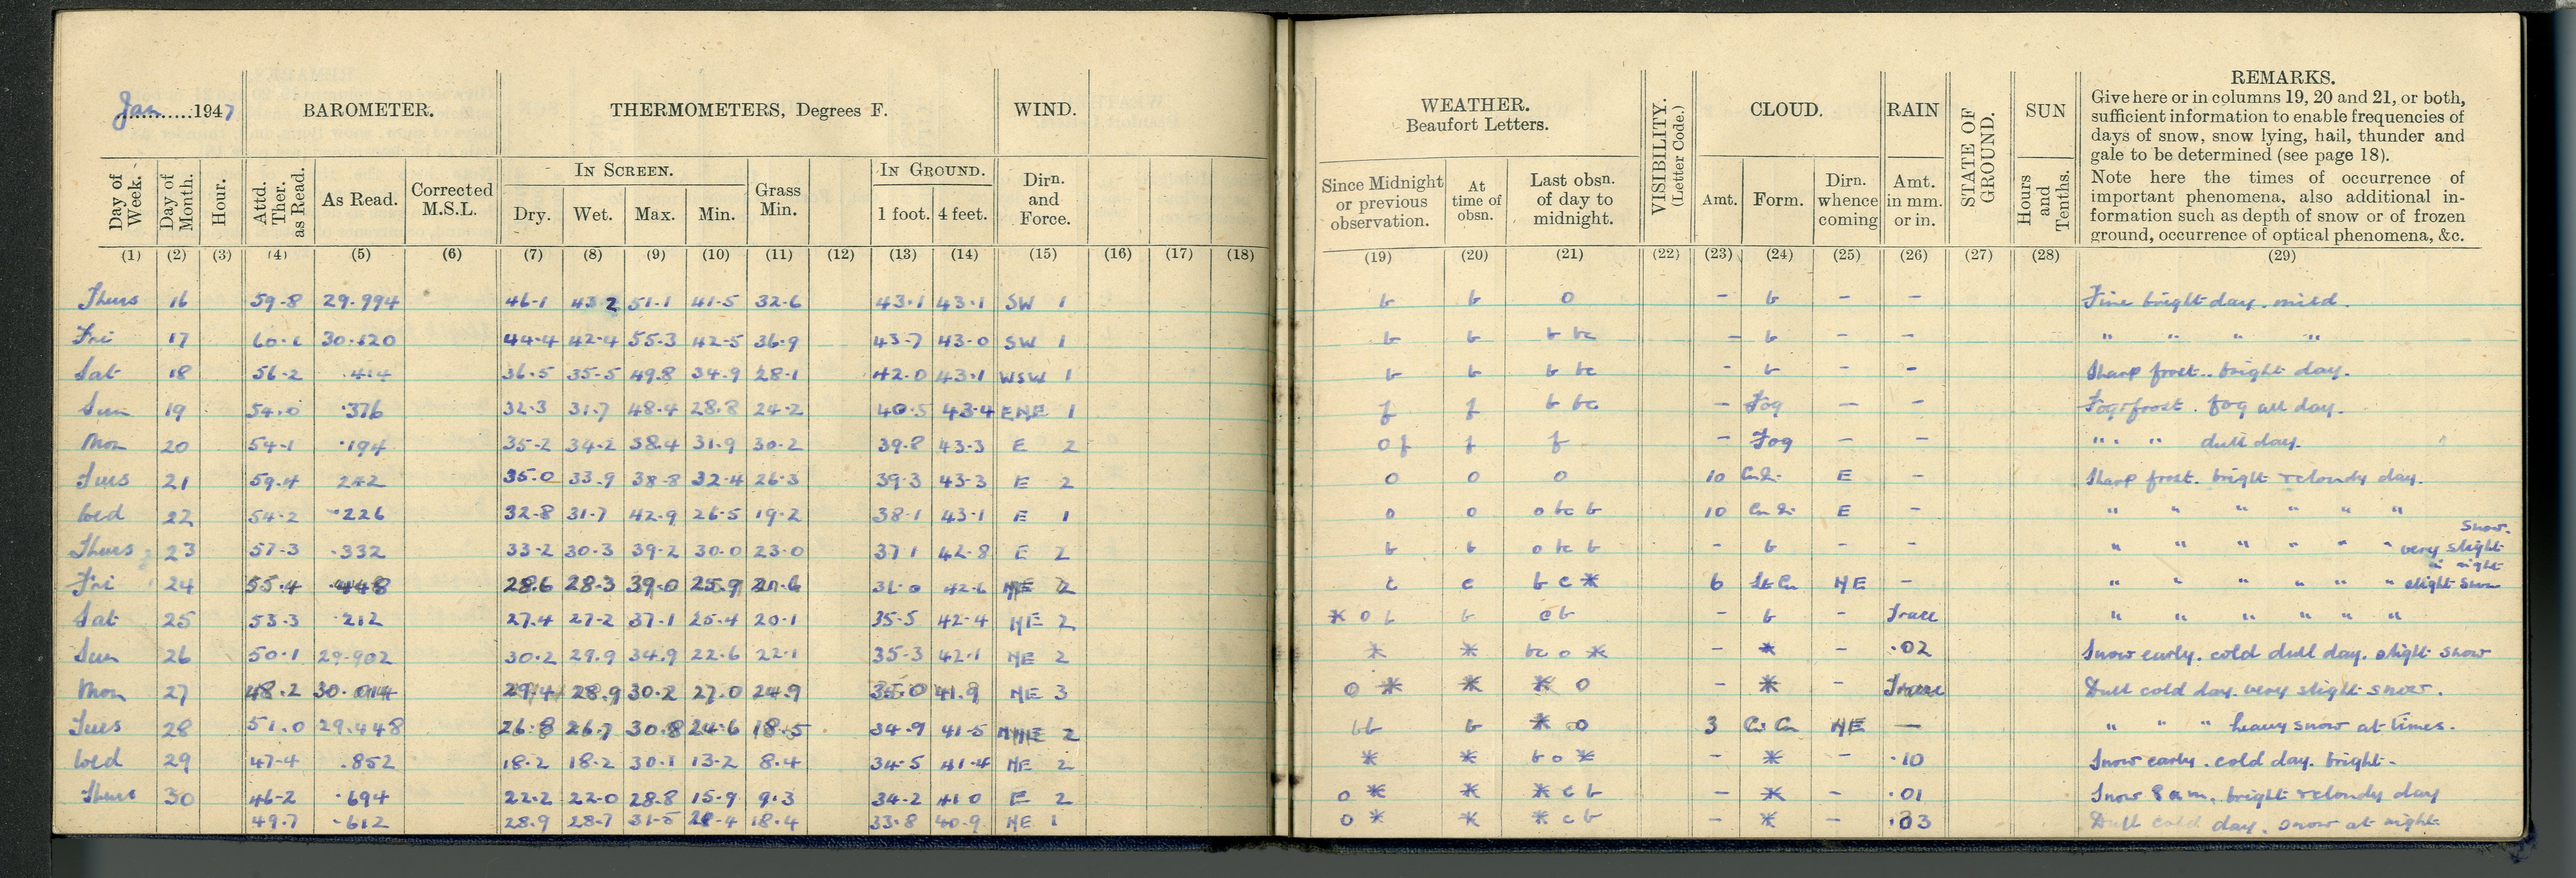 Jan 1947 BAROMETER. THERMOMETERS, Degrees F. WIND.
Day of Week. Day of Month. Hour. Attd. Ther. as Read. As Read. Corrected M.S.L. IN SCREEN. Dry. Wet. Max. Min. Grass Min. IN GROUND. 1 foot. 4 feet. Dirn. and Force.
(1) (2) (3) (4) (5) (6) (7) (8) (9) (10) (11) (12) (13) (14) (15) (16) (17) (18)
Thurs 16 59.8 29.994 46.1 43.2 51.1 41.5 32.6 43.1 43.1 SW 1
Fri 17 60.1 30.120 44.4 42.4 55.3 42.5 36.9 43.7 43.0 SW 1
Sat 18 56.2 .414 36.5 35.5 49.8 34.9 28.1 42.0 43.1 WSW 1
Sun 19 54.0 .376 32.3 31.7 48.4 28.8 24.2 40.5 43.4 ENE 1
Mon 20 54.1 .194 35.2 34.2 38.4 31.9 30.2 39.8 43.3 E 2
Tues 21 59.4 242 35.0 33.9 38.8 32.4 26.3 39.3 43.3 E 2
Wed 22 54.2 .226 32.8 31.7 42.9 26.5 19.2 38.1 43.1 E 1
Thurs 23 57.3 .332 33.2 30.3 39.2 30.0 23.0 37 1 42.8 E 2
Fri 24 55.4 .448 28.6 28.3 39.0 25.9 42.6 NE 2
Sat 25 53.3 .212 27.4 27.2 37.1 25.4 20.1 35.5 42.4 NE 2
Sun 26 50.1 29.902 30.2 29.9 34.9 22.6 22.1 35.3 42.1 NE 2
Mon 27 48.2 30.014 29.4 28.9 30.2 27.0 24.9 35.0 41.9 NE 3
Tues 28 51.0 29.448 26.8 26.7 30.8 24.6 18.5 34.9 41.5 NNE 2
Wed 29 47.4 .852 18.2 18.2 30.1 13.2 8.4 34.5 41.4 NE 2
Thurs 30 46.2 .694 22.2 22.0 28.8 15.9 9.3 34.2 41 0 E 2
49.7 .612 28.9 28.7 31.5 18.4 33.8 40.9 NE 1
WEATHER. Beaufort Letters. VISIBILITY. (Letter Code.) CLOUD. RAIN STATE OF GROUND. SUN REMARKS.
Give here or in columns 19, 20 and 21, or both,
sufficient information to enable frequencies of
days of snow, snow lying, hail, thunder and
gale to be determined (see page 18).
Note here the times of occurrence of
important phenomena, also additional in-
formation such as depth of snow or of frozen
ground, occurrence of optical phenomena, &c.
Since Midnight or previous observation. At time of obsn. Last obsn. of day to midnight. Amt. Form. Dirn. whence coming Amt. in mm. or in. Hours and Tenths.
(19) (20) (21) (22) (23) (24) (25) (26) (27) (28) (29)
b b o - b - - Fine bright day. mild.
b b b bc - b - - " " " "
b b b bc - b - - Sharp frost.. bright day.
f f b bc - Fog - - Fog + frost. fog all day.
o f f f - Fog - - " " dull day.
o o o 10 E - Sharp frost. bright + cloudy day.
o o o bc b 10 E - " " " " " "
b b o bc b - b - - " " " " " " Snow. very slight
c c b c * 6 St Cu NE - " " " " " " slight snow
* o b b c b - b - Trace " " " " " "
* * bc o * - * - .02 Snow early. cold dull day. slight snow
o * * * o - * - Trace Dull cold day. very slight snow.
b b * o 3 Ci Cu NE — " " " heavy snow at times.
* * b o * - * - .10 Snow early. cold day. bright.
o * * * c b - * - .01 Snow 8 am. bright + cloudy day
o * * * c b - * - .03 Dull cold day. snow at night